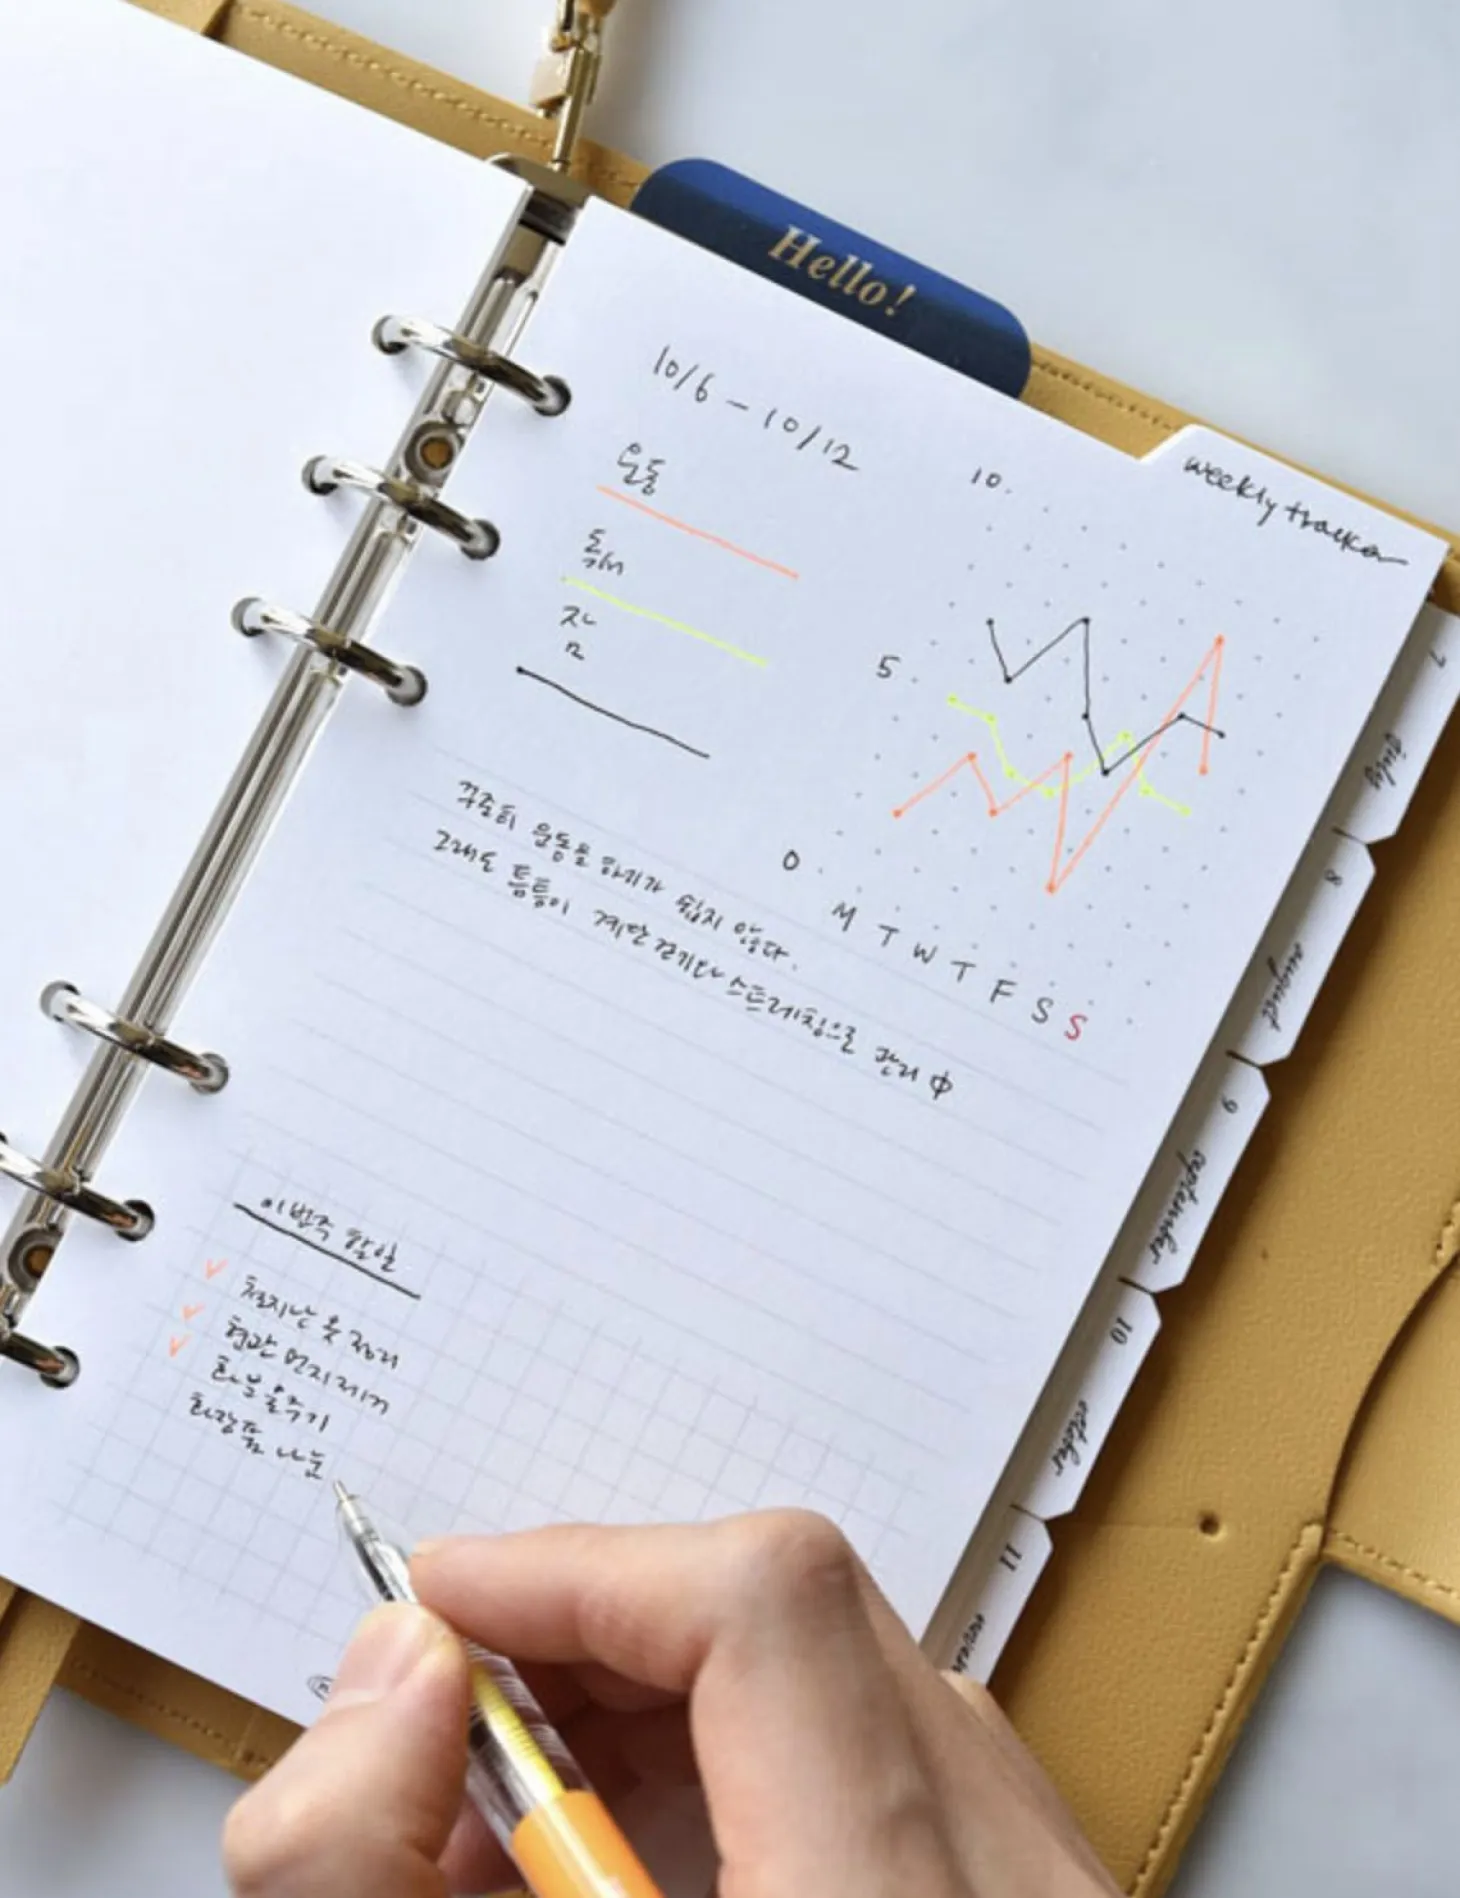 Hello!
weekly tracker
10/6 - 10/12
운동
독서
잠
10
5
0
M T W T F S S
꾸준히 운동을 하기가 쉽지 않다.
그래도 틈틈이 계단 걷기나 스트레칭으로 관리 中
이번주 할일
철지난 옷 정리
현관 먼지제거
화분물주기
화장품 나눔
7
july
8
august
9
september
10
october
11